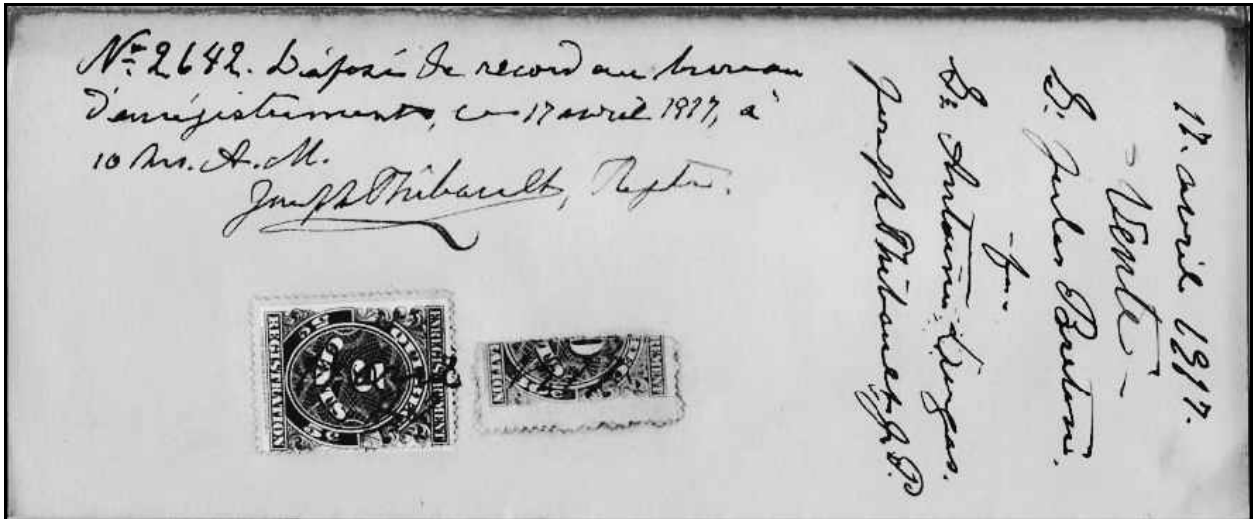 No. 2642. Déposé de record au bureau
d'enrégistrement, ce 17 avril 1917, à
10 hrs. A.M.
Joseph Thibault, Regtr.
ENREGISTREMENT
REGISTRATION
17. avril 1917.
- Vente -
Sr. Jules Breton.
Sr. Antoine
Joseph Thibault J.P.